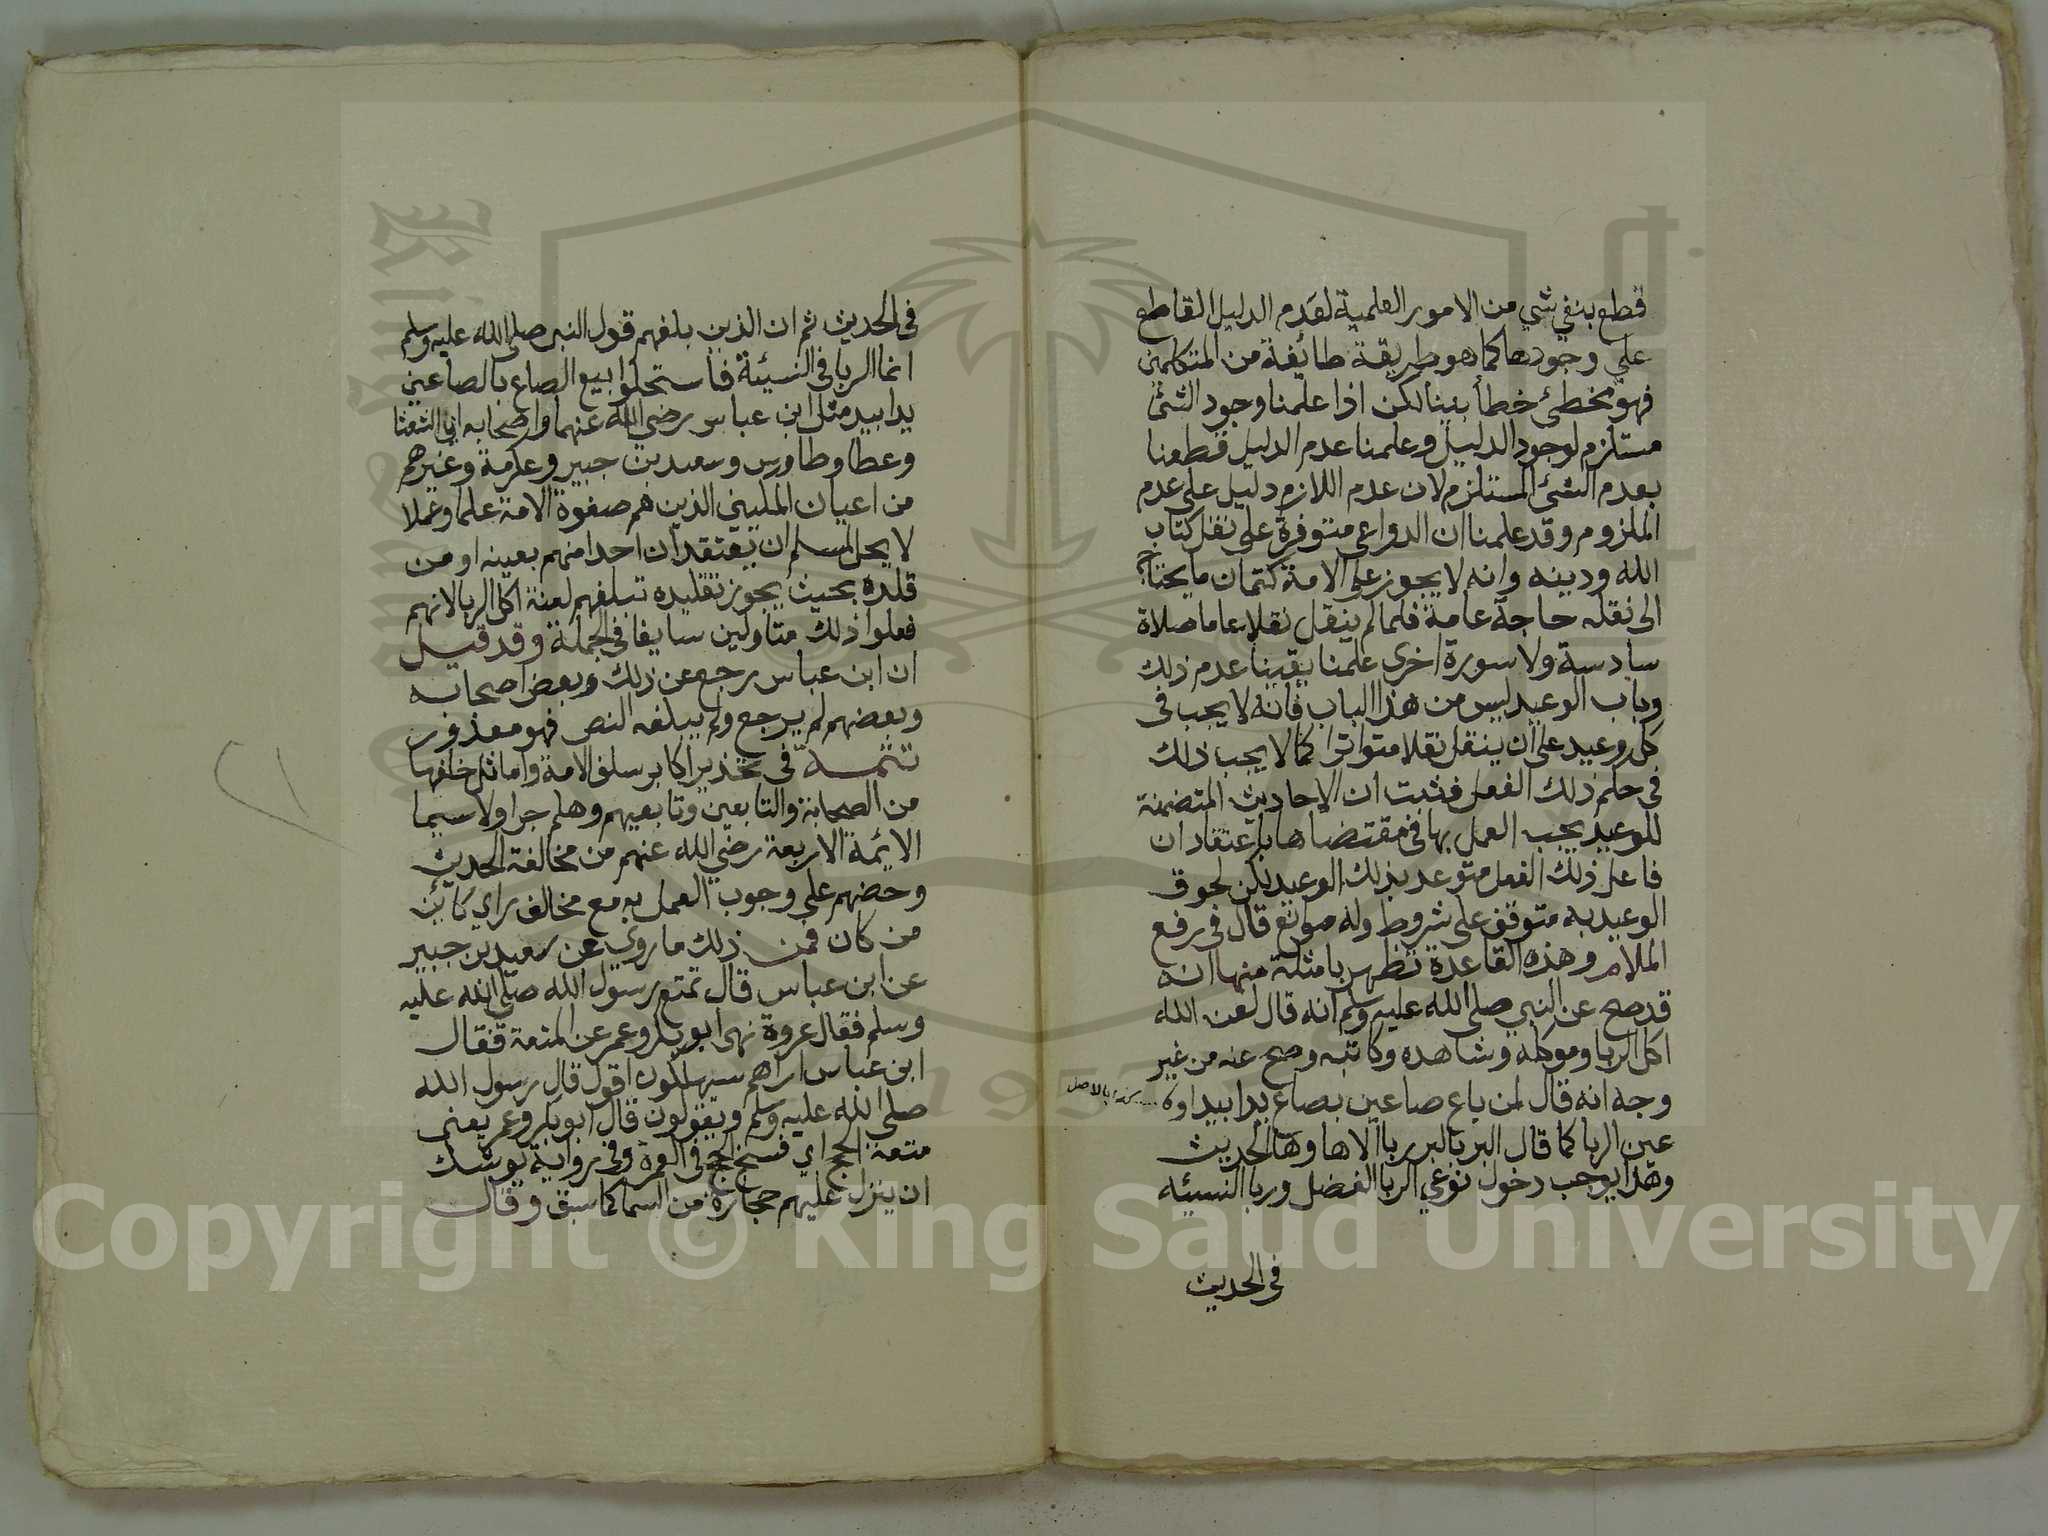 قطع بنفي شي من الامور العلمية لعدم الدليل القاطع
علي وجودها كما هو طريقة طائفة من المتكلمين
فهو مخطئ خطأ بينا لكن اذا علمنا وجود الشئ
مستلزم لوجود الدليل وعلمنا عدم الدليل قطعنا
بعدم الشئ المستلزم لان عدم اللازم دليل على عدم
الملزوم وقد علمنا ان الدواعي متوفرة على نقل كتاب
الله ودينه وانه لا يجوز على الامة كتمان ما يحتاج
الى نقله حاجة عامة فلما لم ينقل نقلا عاما صلاة
سادسة ولا سورة اخرى علمنا يقينا عدم ذلك
وباب الوعيد ليس من هذا الباب فانه لا يجب في
كل وعيد على ان ينقل نقلا متواترا كما لا يجب ذلك
في حكم ذلك الفعل فثبت ان الاحاديث المتضمنة
للوعيد يجب العمل بها في مقتضاها باعتقاد ان
فاعل ذلك الفعل متوعد بذلك الوعيد لكن لحوق
الوعيد به متوقف على شروط وله موانع قال في رفع
الملام وهذه القاعدة تظهر بامثلة منها انه
قد صح عن النبي صلى الله عليه وسلم انه قال لعن الله
اكل الربا وموكله وشاهده وكاتبه وصح عنه من غير
وجه انه قال لمن باع صاعين بصاع يدا بيد اوه كذا بالاصل
عين الربا كما قال البر بالبر ربا الا ها وها الحديث
وهذا يوجب دخول نوعي الربا الفضل وربا النسيئه
في الحديث
في الحديث ثم ان الذين بلغهم قول النبي صلى الله عليه وسلم
انما الربا في النسيئة فاستحلوا بيع الصاع بالصاعين
يدا بيد مثل ابن عباس رضي الله عنهما واصحابه ابي الشعثا
وعطا وطاوس وسعيد بن جبير وعكرمة وغيرهم
من اعيان المكيين الذين هم صفوة الامة علما وعملا
لا يحل لمسلم ان يعتقد ان احدا منهم بعينه او من
قلده بحيث يجوز تقليده تبلغهم لعنة اكل الربا لانهم
فعلوا ذلك متاولين سايغا في الجملة وقد قيل
ان ابن عباس رجع عن ذلك وبعض اصحابه
وبعضهم لم يرجع ولم يبلغه النص فهو معذور
تتمة في تحذير اكابر سلف الامة واماثل خلفها
من الصحابة والتابعين وتابعيهم وهلم جرا ولا سيما
الائمة الاربعة رضي الله عنهم من مخالفة الحديث
وحضهم علي وجوب العمل به مع مخالف راي كائن
من كان فمن ذلك ما روي عن سعيد بن جبير
عن ابن عباس قال تمتع رسول الله صلى الله عليه
وسلم فقال عروة نهى ابو بكر وعمر عن المتعة فقال
ابن عباس اراهم سيهلكون اقول قال رسول الله
صلى الله عليه وسلم ويقولون قال ابو بكر وعمر يعني
متعة الحج اي فسخ الحج في العمرة وفي رواية يوشك
ان ينزل عليهم حجارة من السما كما سبق وقال
٢١
Copyright © King Saud University
1957